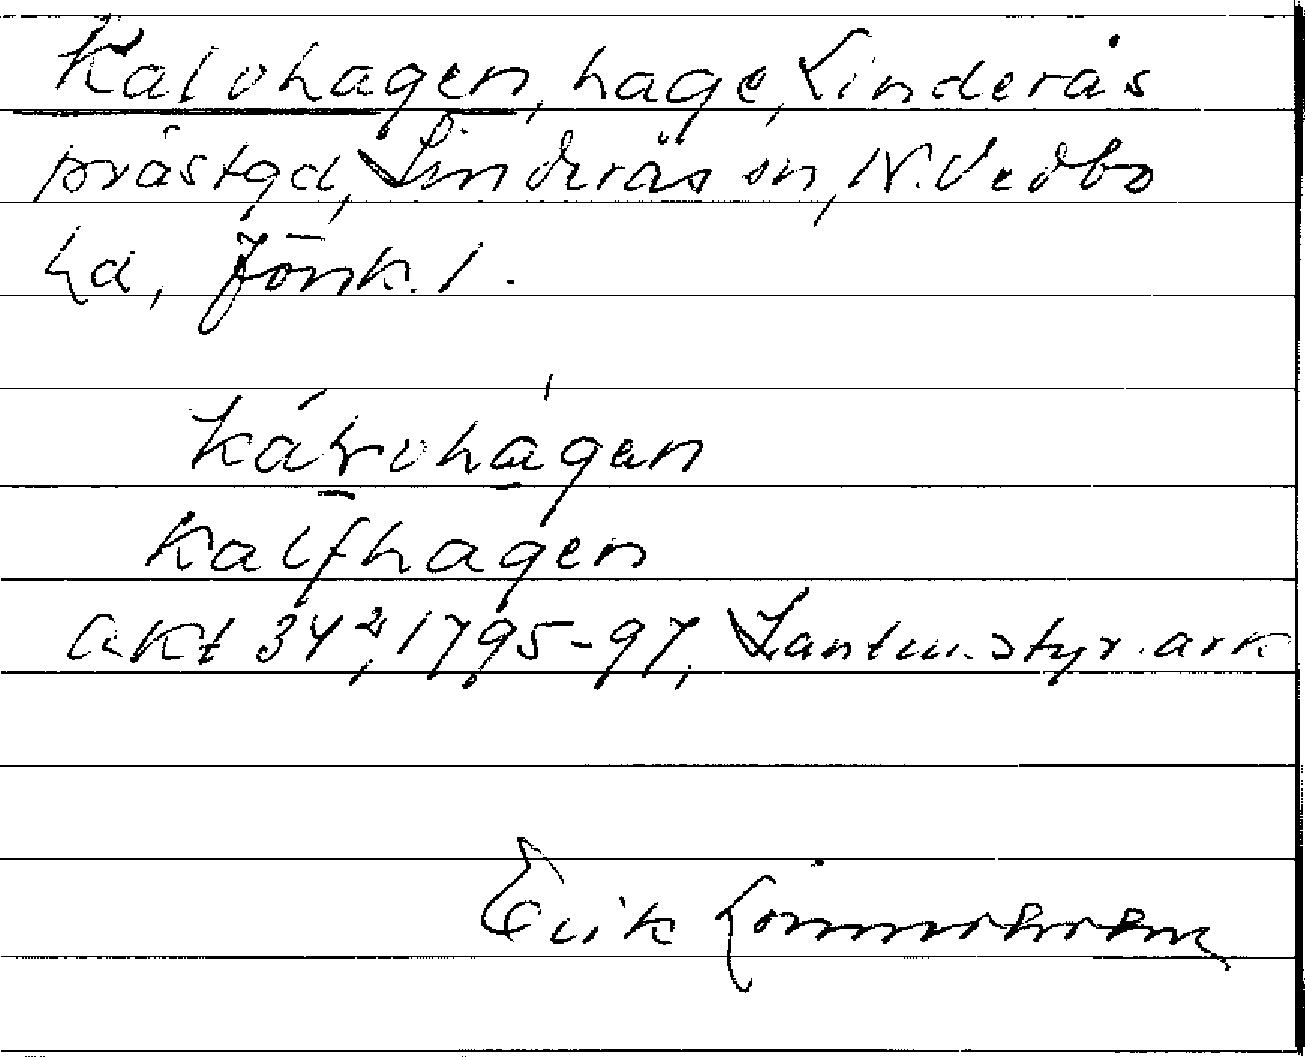 Kalvhagen, hage, Linderås
prästgd, Linderås sn, N. Vedbo
hd, Jönk. l.
Kalfhagen
akt 34², 1795-97, Lantm.styr.ark
Erik